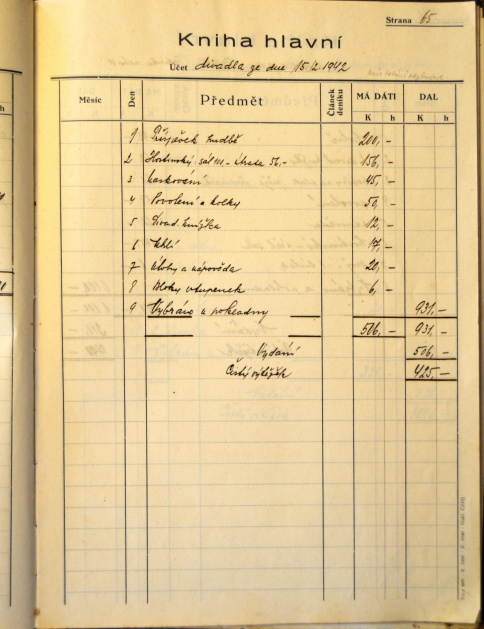 Strana 65
Kniha hlavní
Účet divadla ze dne 15 1942
Měsíc Den Předmět Článek deníku MÁ DÁTI DAL
K h K h
1 Příspěvek hudbě 200,-
2 Hostinský, sál 100,- útrata 56,- 156,-
3 maskování 45,-
4 Povolení a kolky 50,-
5 knížka 12,-
6 Uhlí 17,-
7 Úlohy a nápověda 20,-
8 Bloky vstupenek 6,-
9 Vybráno u pokladny 931,-
506,- 931,-
Vydání 506,-
Čistý výtěžek 425,-